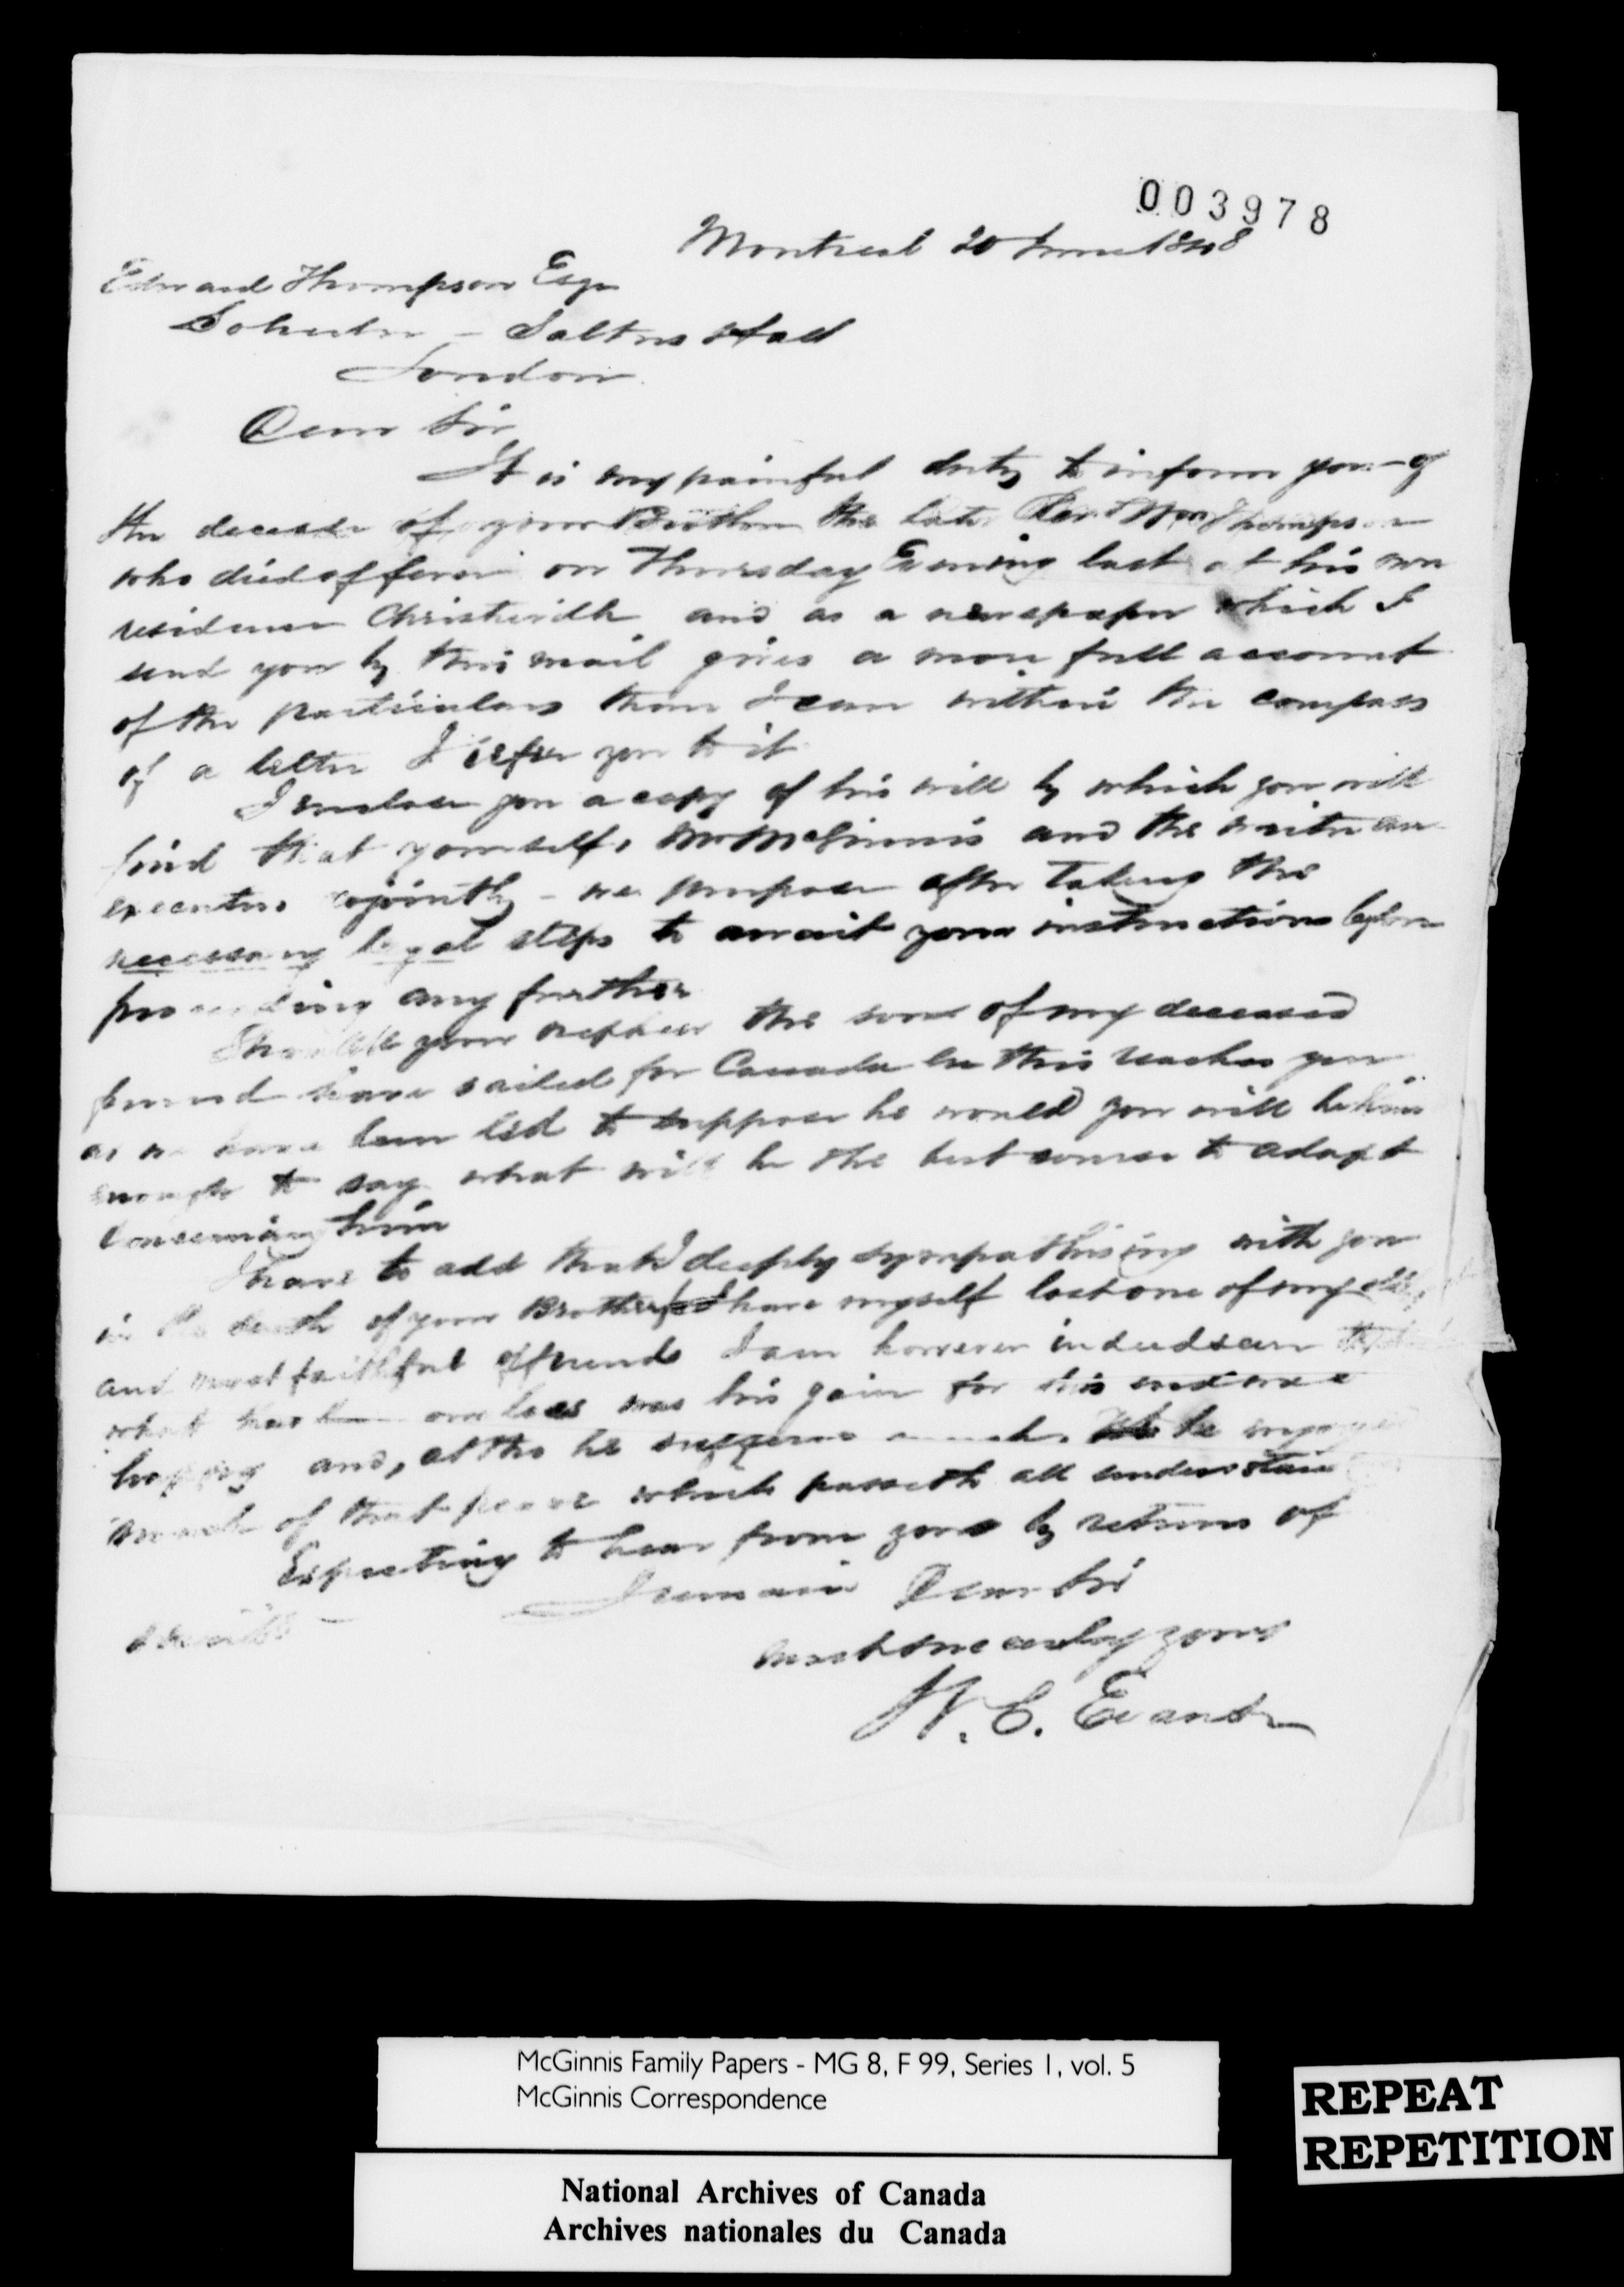 003978
Montreal 20 June 1848
Edward Thompson Esqr
Salters Hall
London
Dear Sir
It is my painful duty to inform you of
the decease of your Brother the late Revd Wm Thompson
who died of fever on Thursday Evening last at his own
residence Christieville and as a newspaper which I
send you by this mail gives a more full account
of the particulars than I can within the compass
of a letter I refer you to it
I enclose you a copy of his will by which you will
find that yourself, Mr McGinnis and the writer are
executors cojointly - we purpose after taking the
necessary legal steps to await your instructions before
proceeding any further
Should your nephew the son of my deceased
friend have sailed for Canada ere this reaches you
as we have been led to suppose he would you will be kind
enough to say what will be the best course to adopt
concerning him
I have to add that I deeply sympathising with you
in the death of your Brother I have myself lost one of my oldest
and most faithful friends I am however indeed
what has been our loss was his gain for his end was
happy and, altho he suffered much he enjoyed
much of that peace which passeth all understanding
Expecting to hear from you by return of
I remain Dear Sir
most sincerely yours
W. C. Evans
McGinnis Family Papers - MG 8, F 99, Series 1, vol. 5
McGinnis Correspondence
National Archives of Canada
Archives nationales du Canada
REPEAT
REPETITION